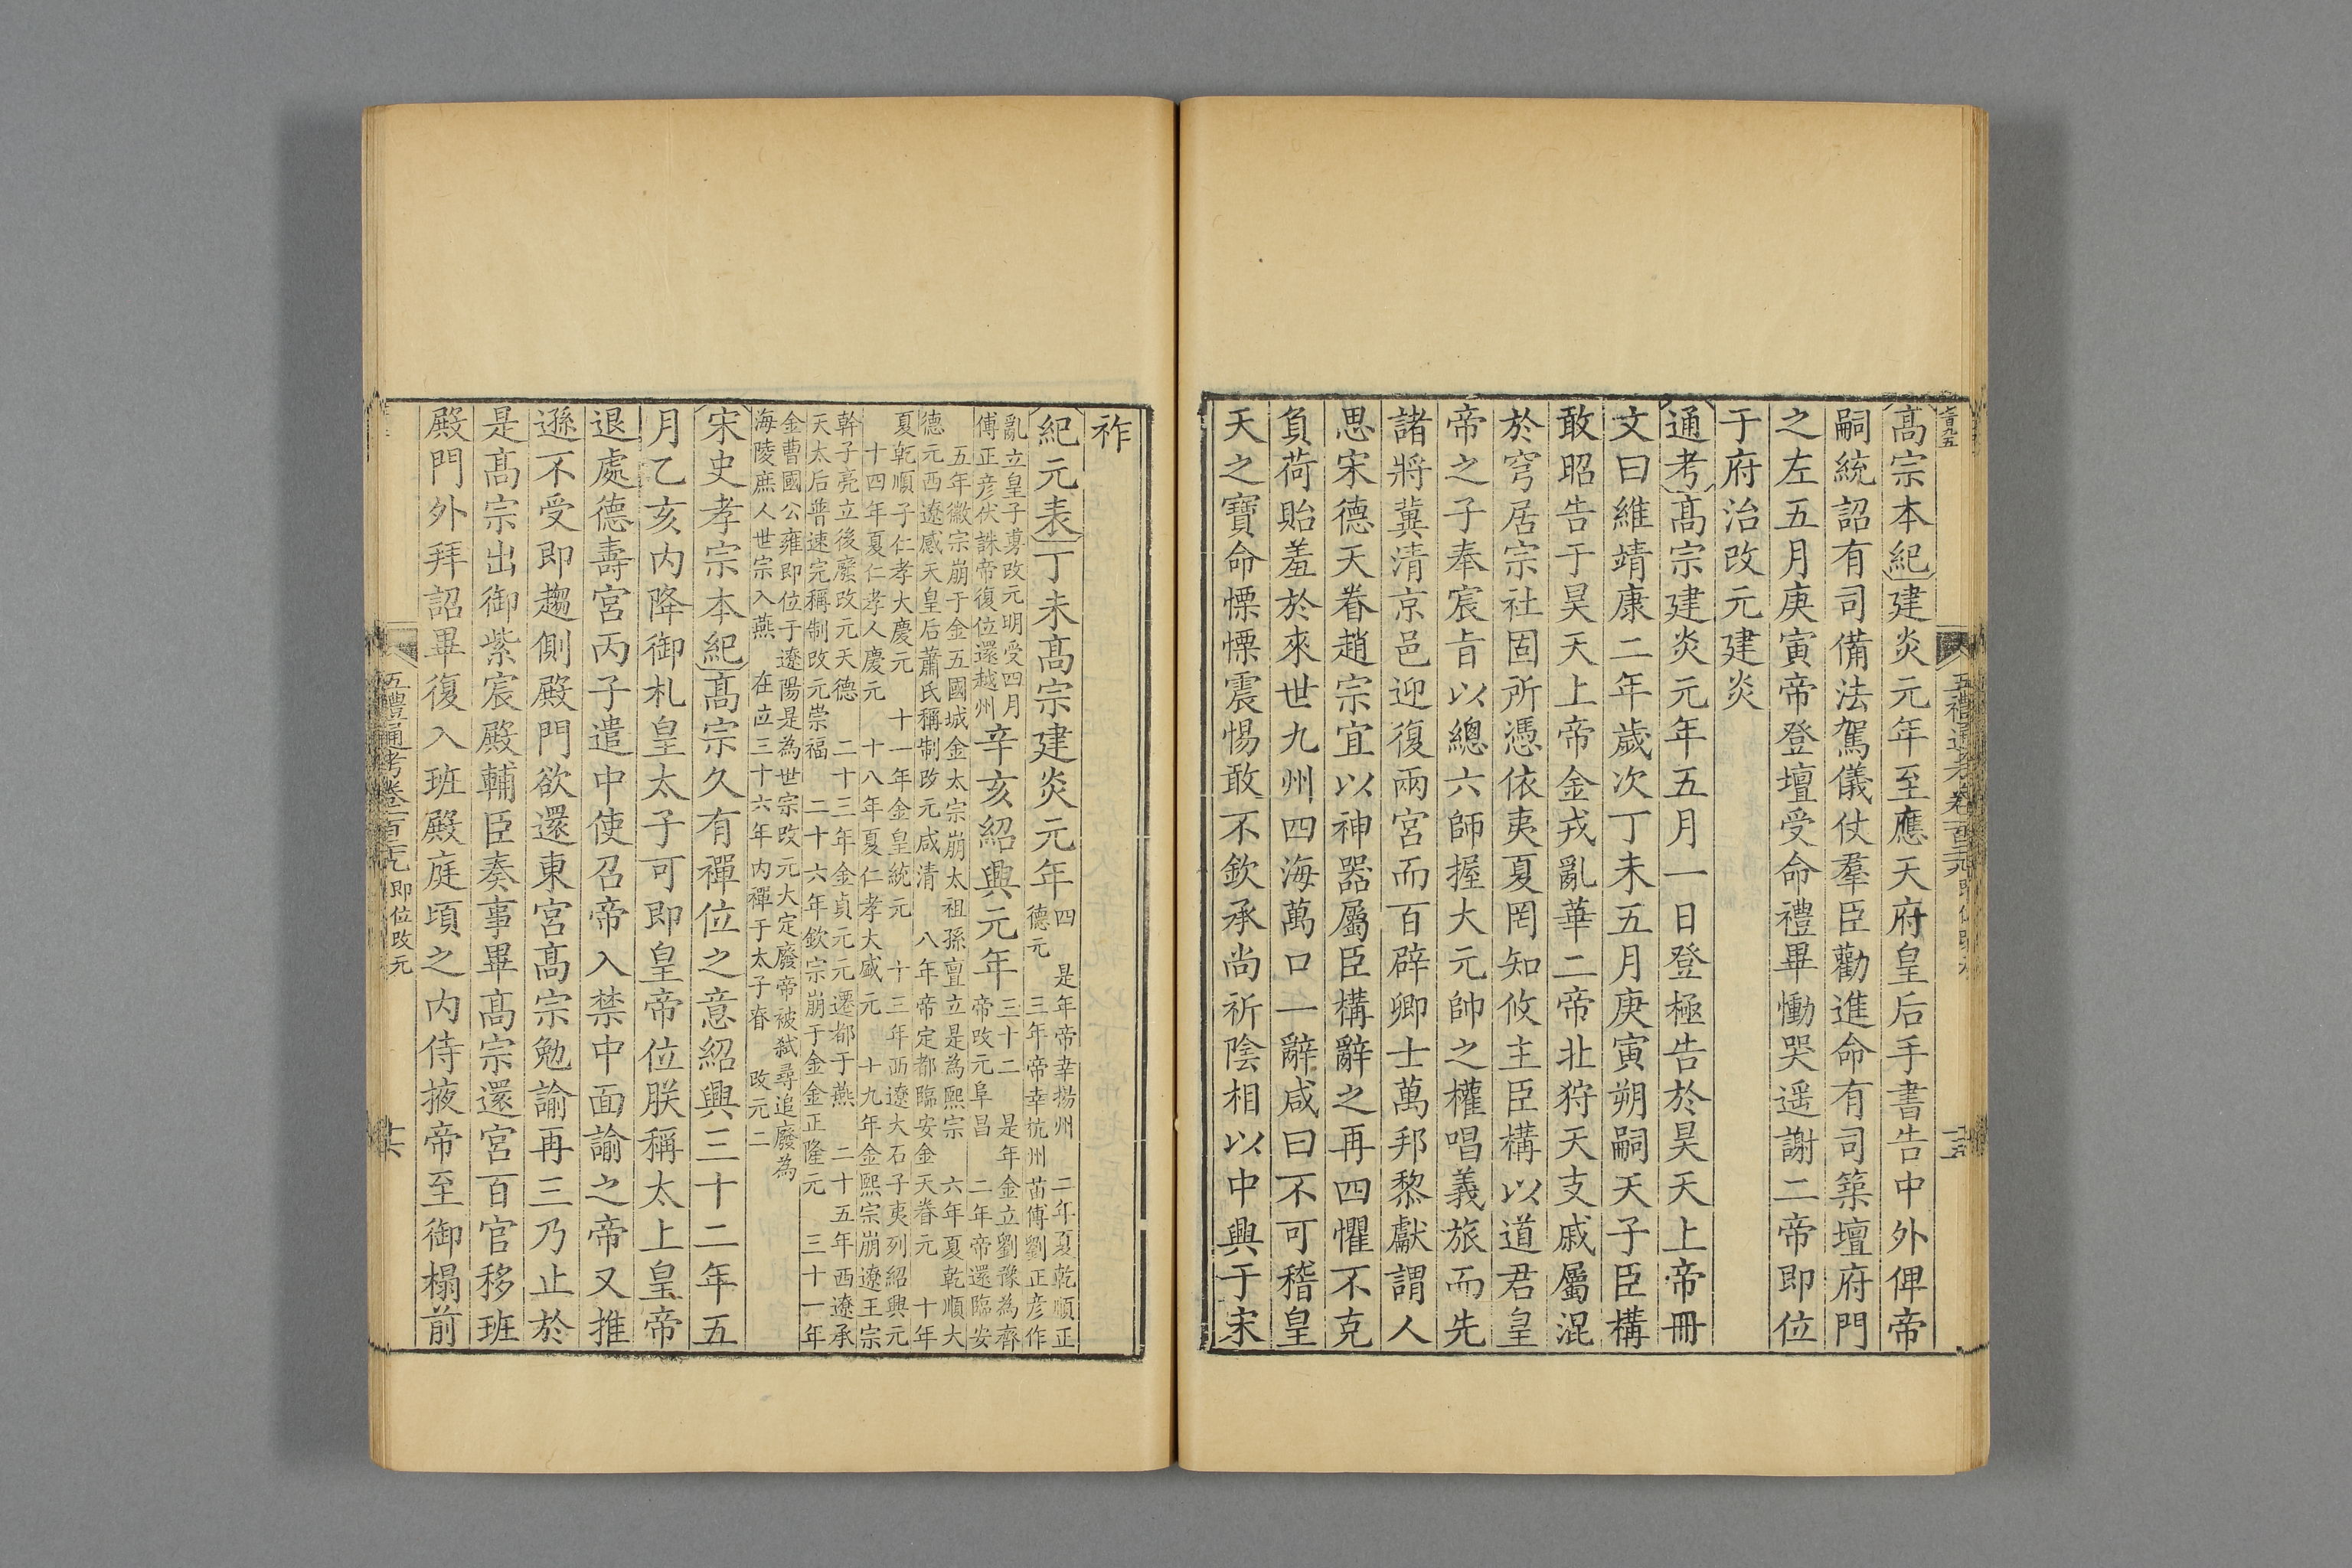 高宗本紀建炎元年至應天府皇后手書告中外俾帝
嗣統詔有司備法駕儀仗羣臣勸進命有司築壇府門
之左五月庚寅帝登壇受命禮畢慟哭遥謝二帝即位
于府治改元建炎
通考高宗建炎元年五月一日登極告於昊天上帝冊
文曰維靖康二年歲次丁未五月庚寅朔嗣天子臣構
敢昭告于昊天上帝金戎亂華二帝北狩天支戚屬混
於穹居宗社固所憑依夷夏罔知攸主臣構以道君皇
帝之子奉宸㫖以總六師握大元帥之權唱義旅而先
諸將冀清京邑迎復兩宮而百辟卿士萬邦黎獻謂人
思宋德天眷趙宗宜以神器屬臣構辭之再四懼不克
負荷貽羞於來世九州四海萬口一辭咸曰不可稽皇
天之寶命慄慄震惕敢不欽承尚祈陰相以中興于宋
祚
紀元表丁未高宗建炎元年四 是年帝幸揚州 二年夏乾順正
德元 三年帝幸杭州苗傅劉正彦作
亂立皇子旉改元明受四月
傅正彦伏誅帝復位還越州
辛亥紹興元年三十二 是年金立劉豫為齊
帝改元阜昌 二年帝還臨安
五年徽宗崩于金五國城金太宗崩太祖孫亶立是為熙宗 六年夏乾順大
德元西遼感天皇后蕭氏稱制改元咸清 八年帝定都臨安金天眷元 十年
夏乾順子仁孝大慶元 十一年金皇統元 十三年西遼大石子夷列紹興元
十四年夏仁孝人慶元 十八年夏仁孝大盛元 十九年金熙宗崩遼王宗
幹子亮立後廢改元天德 二十三年金貞元元遷都于燕 二十五年西遼承
天太后普速完稱制改元崇福 二十六年欽宗崩于金金正隆元 三十一年
金曹國公雍即位于遼陽是為世宗改元大定廢帝被弑尋追廢為
海陵庶人世宗入燕 在位三十六年内禪于太子昚 改元二
宋史孝宗本紀高宗久有禪位之意紹興三十二年五
月乙亥内降御札皇太子可即皇帝位朕稱太上皇帝
退處德壽宮丙子遣中使召帝入禁中面諭之帝又推
遜不受即趨側殿門欲還東宮高宗勉諭再三乃止於
是高宗出御紫宸殿輔臣奏事畢高宗還宮百官移班
殿門外拜詔畢復入班殿庭頃之内侍掖帝至御榻前
五禮通考卷一百二十九即位改元
十六